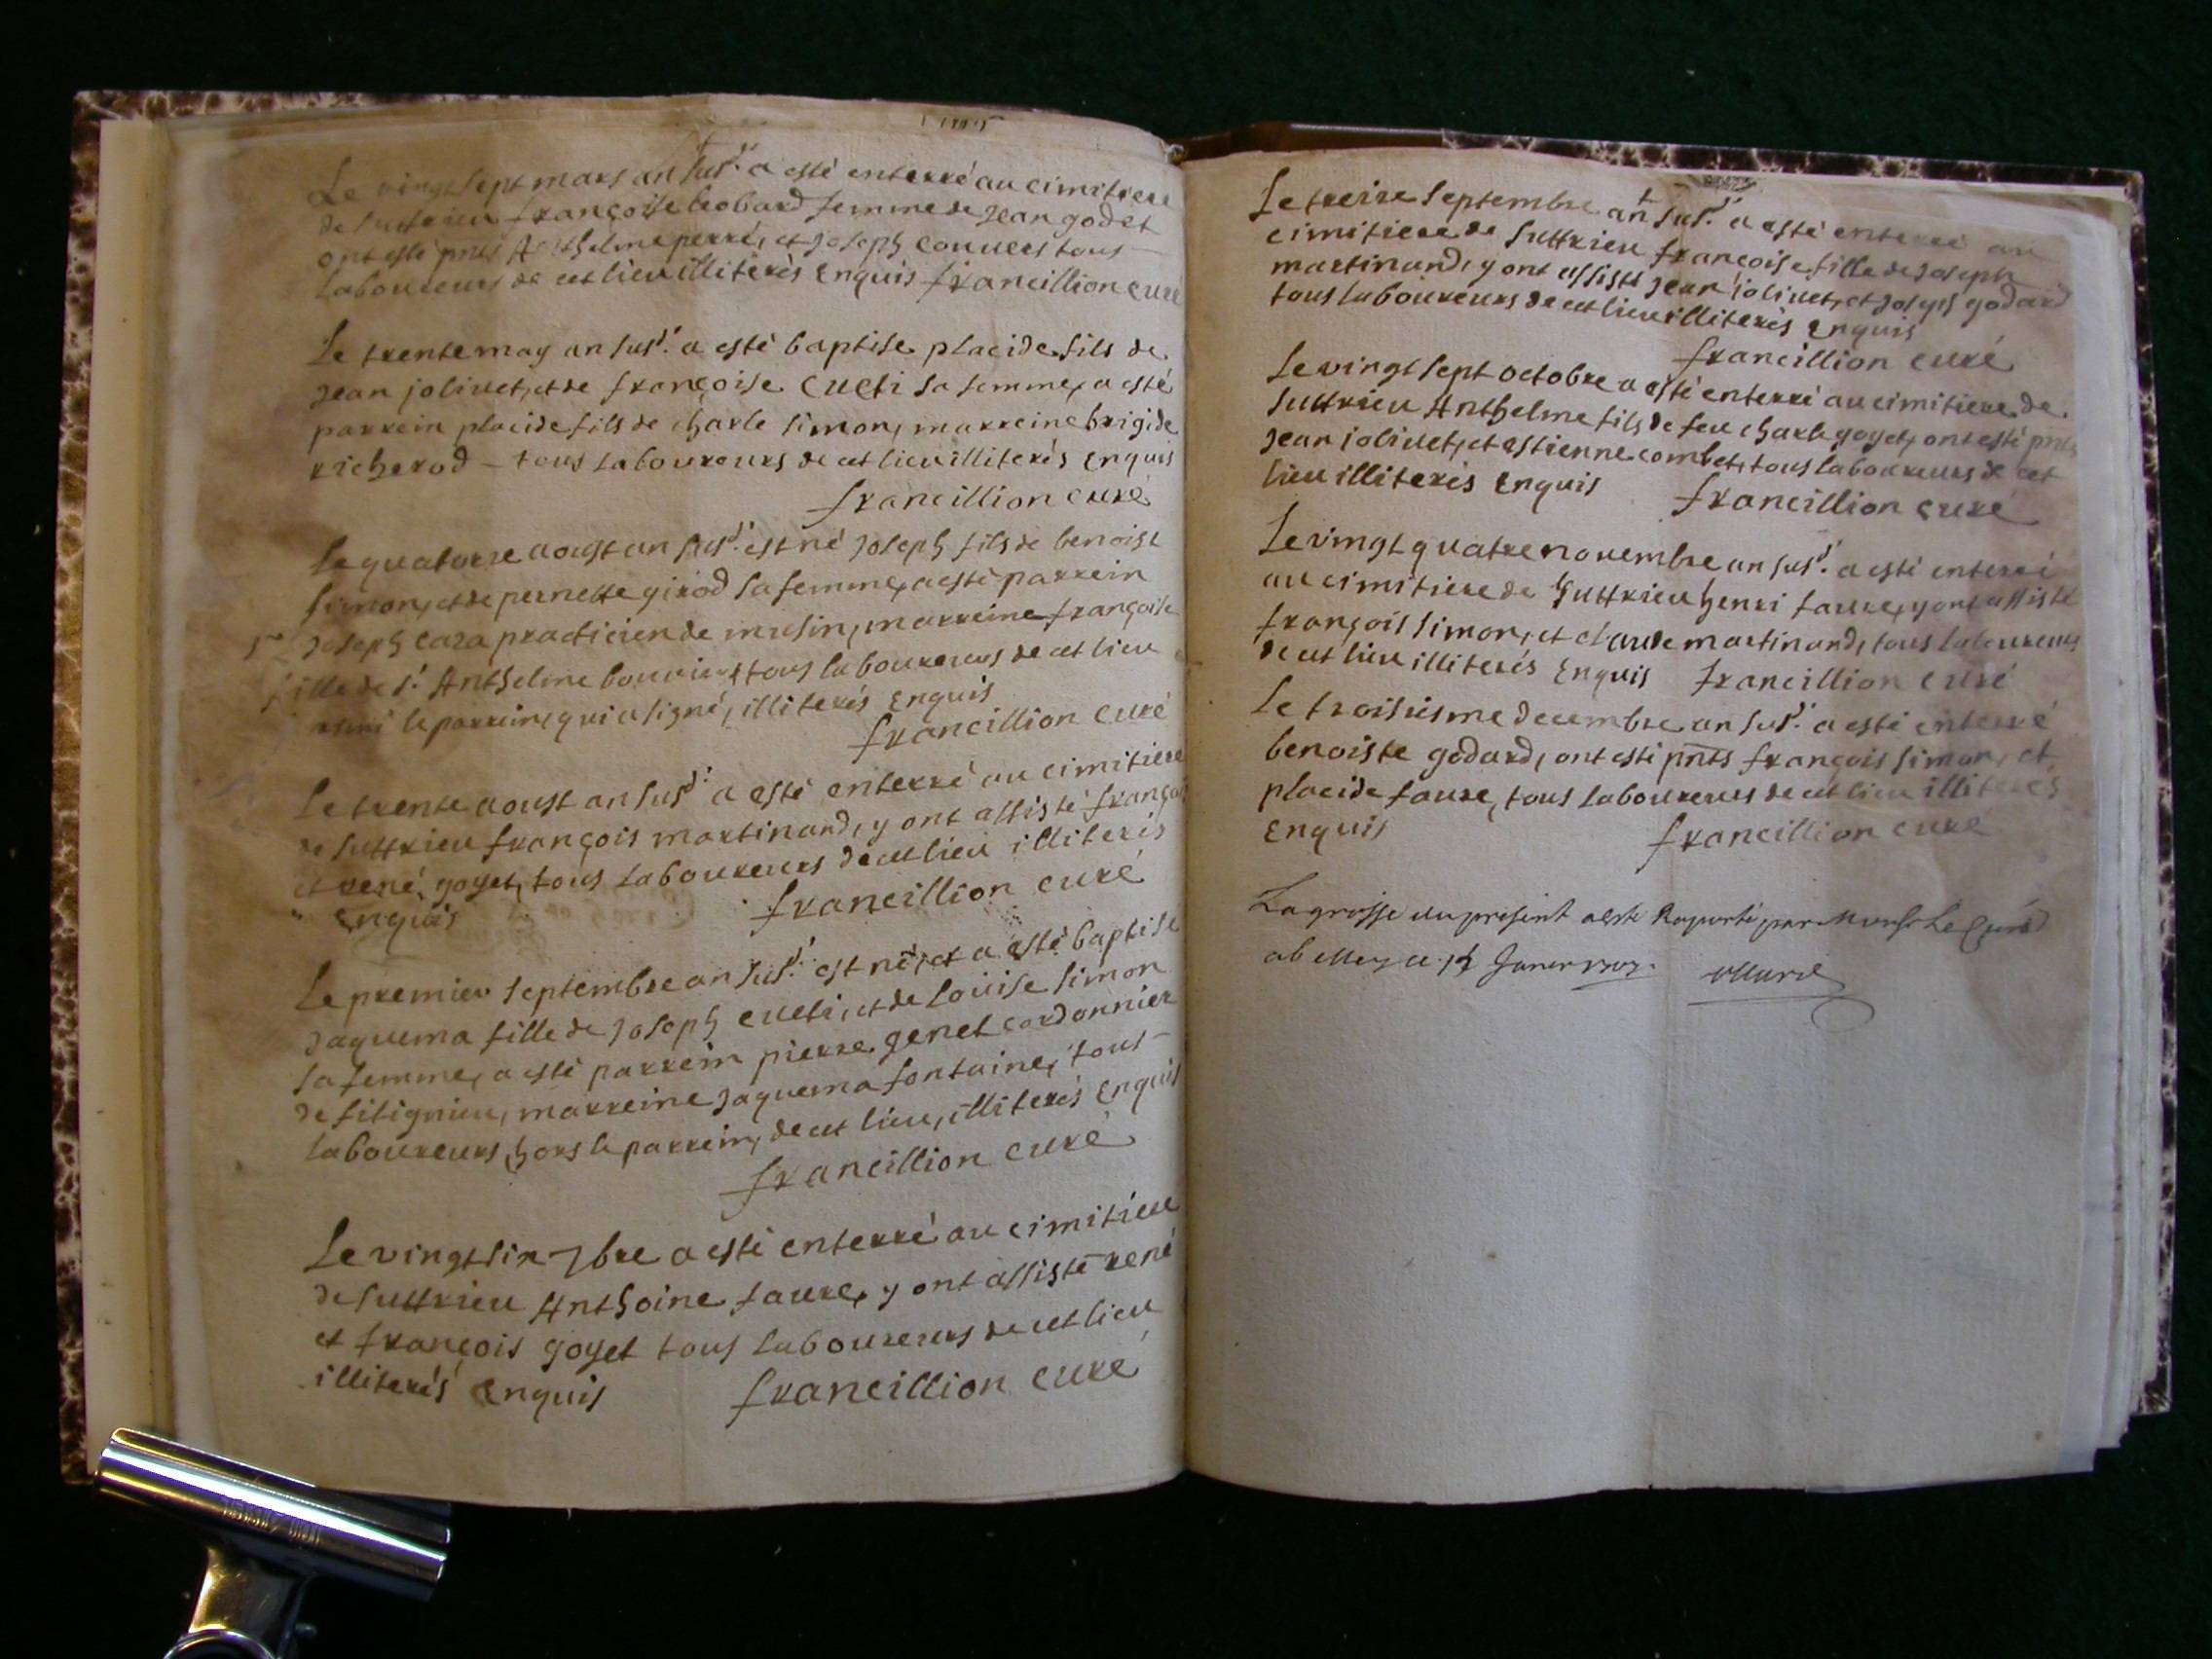 Le vingt sept mars an susd.' a esté enterré au cimitiere
de suttrieu françoise leobard femme de Jean godet
ont esté pnts Anthelme perré, et Joseph convers tous
laboureurs de cet lieu illiterés enquis francillion curé
Le trente may an susd.' a esté baptise placide fils de
Jean jolivet, et de françoise cueti sa femme, a esté
parrein placide fils de charle simon, marreine brigide
richerod – tous laboureurs de cet lieu illiterés enquis
francillion curé
Le quatorze aoust an susd.' est né Joseph fils de benoist
simon, et de pernette girod sa femme, a esté parrein
Joseph caza practicien de musin, marreine françoise
fille de s.' Anthelme bouvier, tous laboureurs de cet lieu
le parrein, qui a signé, illiterés enquis
francillion curé
Le trente aoust an susd.' a esté enterré au cimitiere
de suttrieu françois martinand, y ont assisté françois
et rené goyet, tous laboureurs de cet lieu illiterés
enquis francillion curé
Le premier septembre an susd.' est né, et a esté baptise
Jaquema fille de Joseph cueti, et de Louise simon
sa femme, a esté parrein pierre genet cordonnier
de fitignieu, marreine Jaquema fontaine, tous
laboureurs, hors le parrein, de cet lieu, illiterés enquis
francillion curé
Le vingt six 7bre a esté enterré au cimitiere
de suttrieu Anthoine faure, y ont assisté rené
et françois goyet tous laboureurs de cet lieu
illiterés enquis francillion curé
Le treize septembre an susd.' a esté enterré au
cimitiere de suttrieu françoise fille de Joseph
martinand, y ont assisté Jean jolivet, et Joseph godard
tous laboureurs de cet lieu illiterés enquis
francillion curé
Le vingt sept octobre a esté enterré au cimitiere de
suttrieu Anthelme fils de feu charle goyet, ont esté pnts
Jean jolivet, et estienne combet, tous laboureurs de cet
lieu illiterés enquis francillion curé
Le vingt quatre novembre an susd.' a esté enterré
au cimitiere de suttrieu henri faure, y ont assisté
françois simon, et claude martinand, tous laboureurs
de cet lieu illiterés enquis francillion curé
Le troisiesme decembre an susd.' a esté enterré
benoiste godard, ont esté pnts françois simon, et
placide faure, tous laboureurs de cet lieu illiterés
enquis francillion curé
La grosse du present a esté Raporté par Monsr Le Curé